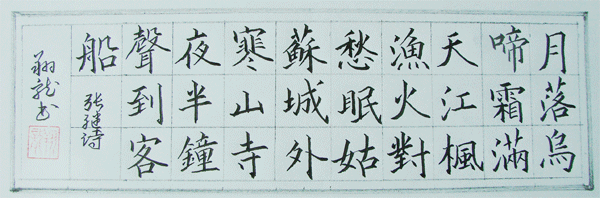 月落烏
啼霜滿
天江楓
漁火對
愁眠姑
蘇城外
寒山寺
夜半鐘
聲到客
船
张继诗
翔龙书